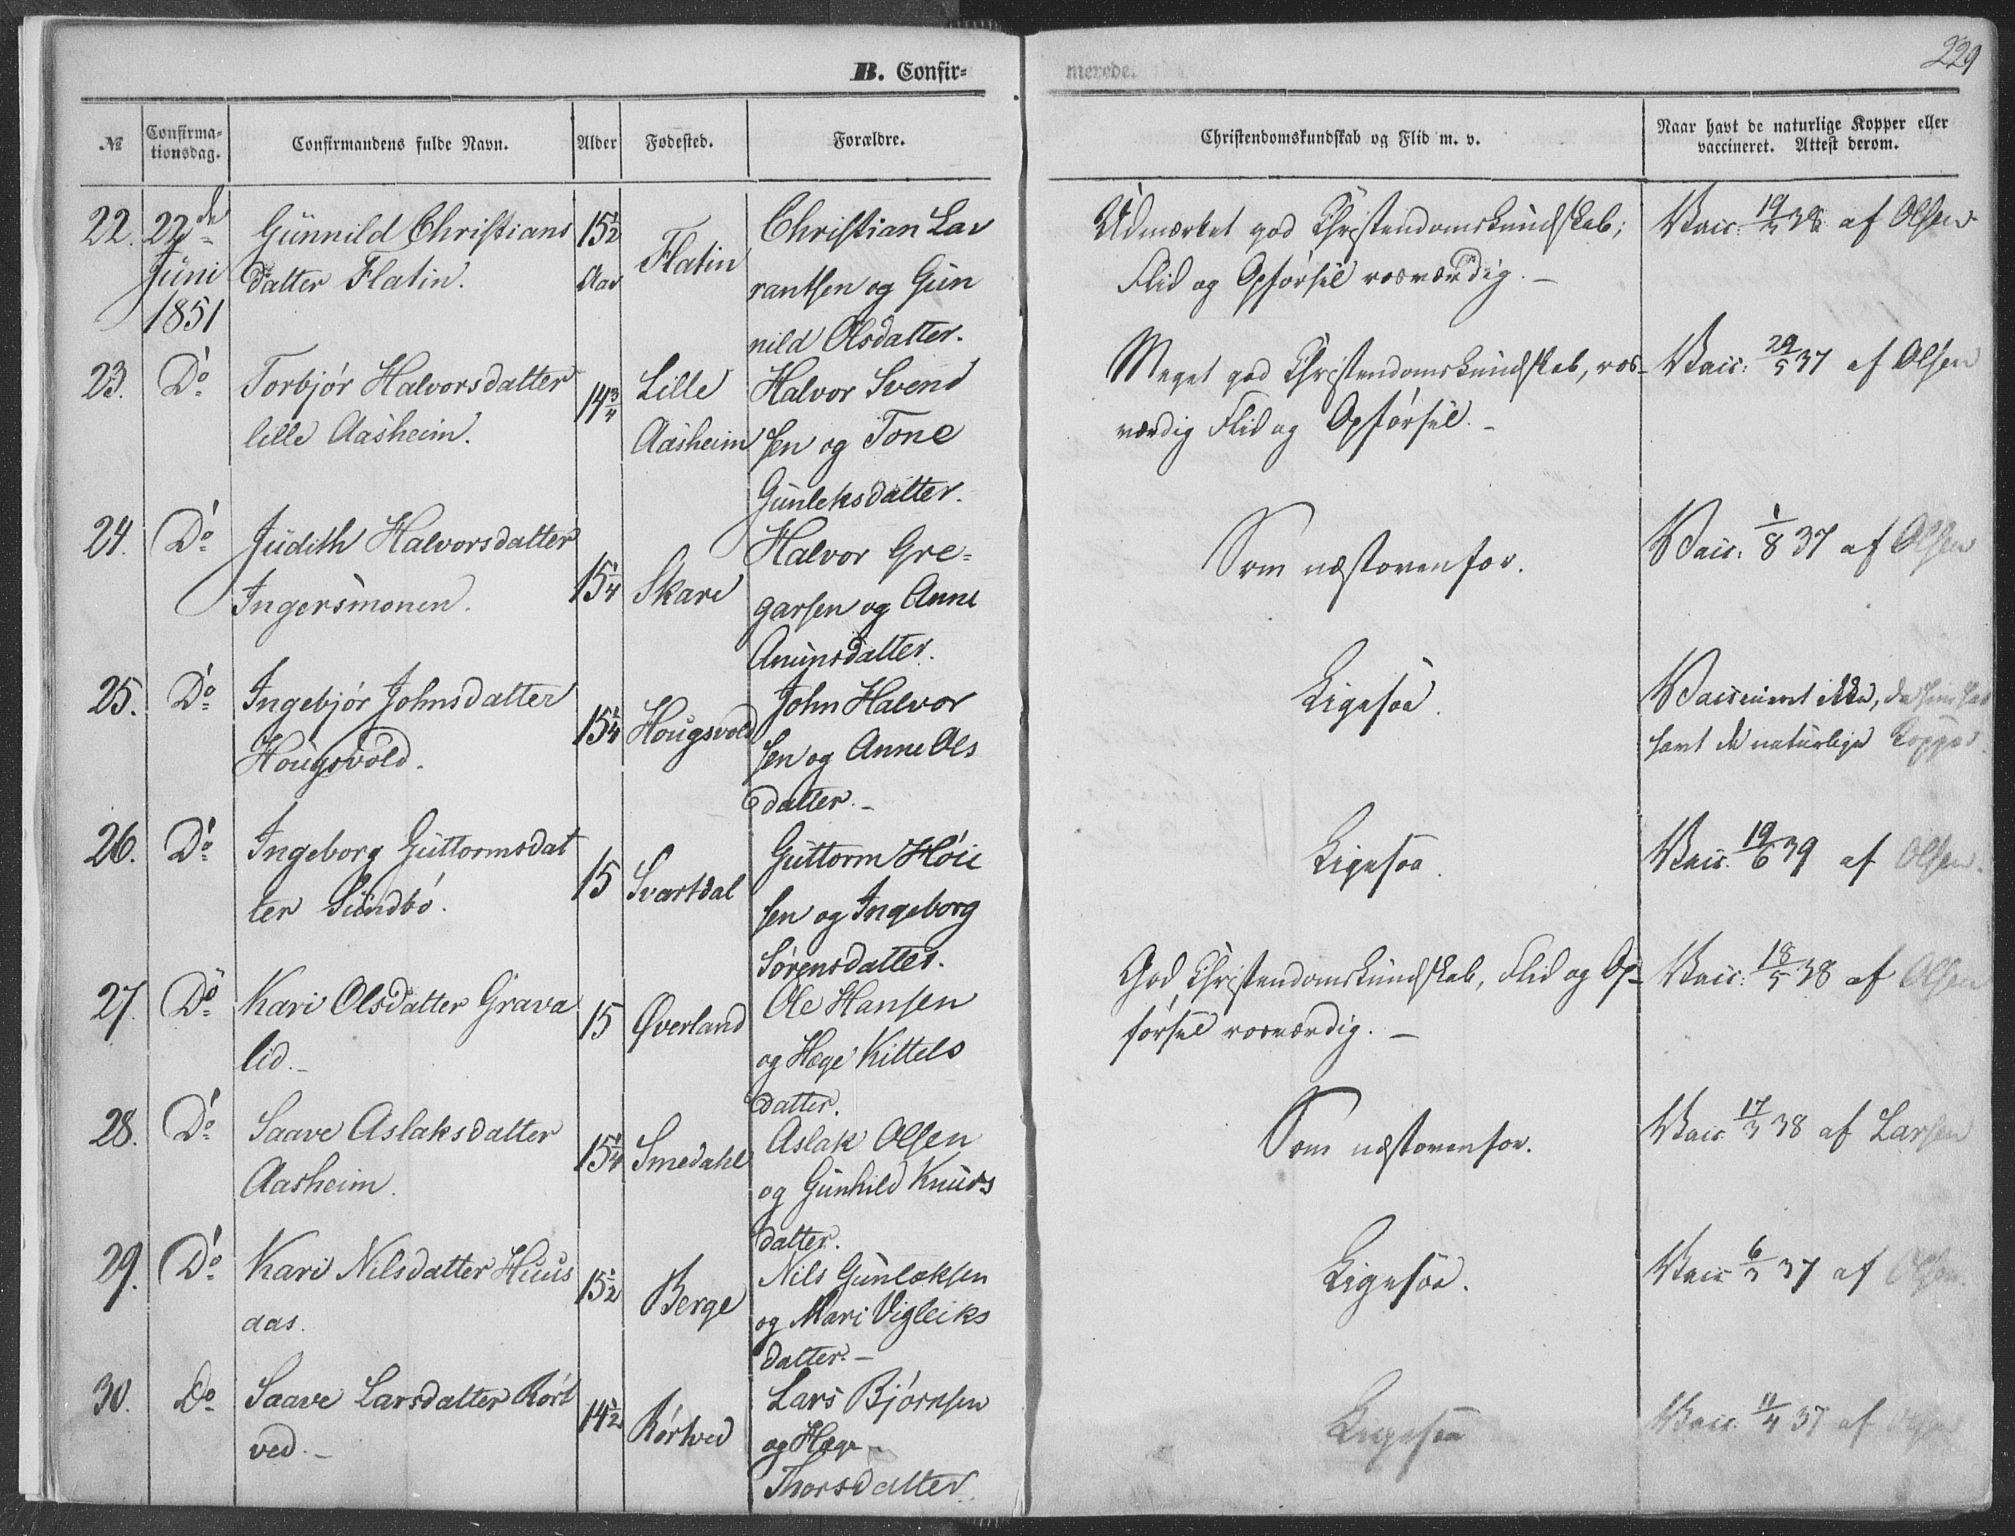 B. Confir-
merede.
229
№
Confirma-
tionsdag.
Confirmandens fulde Navn.
Alder
Fødested.
Forældre.
Christendomskundskab og Flid m. v.
Naar havt de naturlige Kopper eller
vaccineret. Attest derom.
22. 22de Gunnild Christians 15½ Flatin Christian Lav
Juni datter Flatin. Aar rantsen og Gun
1851 nild Olsdatter.
Udmærket god Christendomskundskab;
Flid og Opførsel rosværdig. –
Vacc. 19/5 38 af Olsen
23. Do Torbjør Halvorsdatter 14¾ Lille Halvor Svend
lille Aasheim. Aasheim sen og Tone
Gunleksdatter.
Meget god Christendomskundskab, ros-
værdig Flid og Opførsel. –
Vacc. 29/5 37 af Olsen
24. Do Judith Halvorsdatter 15¼ Skare Halvor Gre-
Ingersmonen. garsen og Anne
Anunsdatter.
Som næstovenfor.
Vacc. 1/8 37 af Olsen
25. Do Ingebjør Johnsdatter 15¼ Hougsvold John Halvor
Hougsvold. sen og Anne Ols
datter. –
Ligesaa.
Vaccineret ikke, da hun har
havt de naturlige Kopper.
26. Do Ingeborg Guttormsdat 15 Svartdal Guttorm Høie
ter Sundbø. sen og Ingeborg
Sørensdatter.
Ligesaa.
Vacc. 19/6 39 af Olsen.
27. Do Kari Olsdatter Grava 15 Øverland Ole Hansen
lid. – og Hæge Kittels
datter.
God Christendomskundskab, Flid og Op-
førsel rosværdig. –
Vacc. 18/5 38 af Olsen
28. Do Saave Aslaksdatter 15¼ Smedahl Aslak Olsen
Aasheim. og Gunhild Knuds
datter.
Som næstovenfor.
Vacc. 17/3 38 af Larsen
29. Do Kari Nilsdatter Huus 15½ Berge Nils Gunleksen
aas. og Mari Vigleiks
datter. –
Ligesaa.
Vacc. 6/3 37 af Olsen.
30. Do Saave Larsdatter Rørt 14½ Rørtved Lars Bjørnsen
ved. – og Hæge
Thorsdatter
Ligesaa
Vacc. 11/4 37 af Olsen